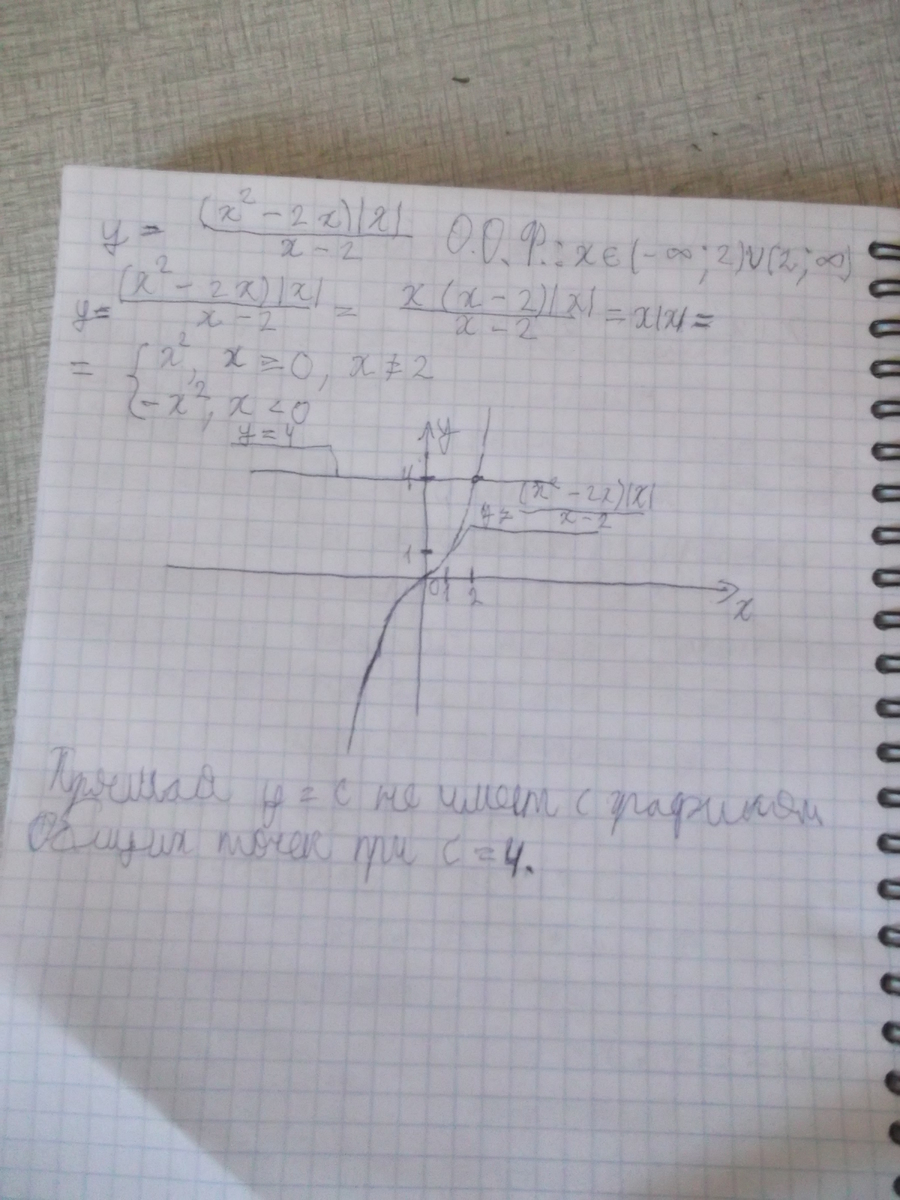 y = (x² - 2x)|x| / x - 2   О.О.Ф.: x ∈ (-∞; 2)∪(2; ∞)
y = (x² - 2x)|x| / x - 2 = x(x - 2)|x| / x - 2 = x|x| =
= { x², x ≥ 0, x ≠ 2
-x², x < 0
y = 4
y
4
y = (x² - 2x)|x| / x - 2
1
0 1 2
x
Прямая y = c не имеет с графиком
Общих точек при c = 4.